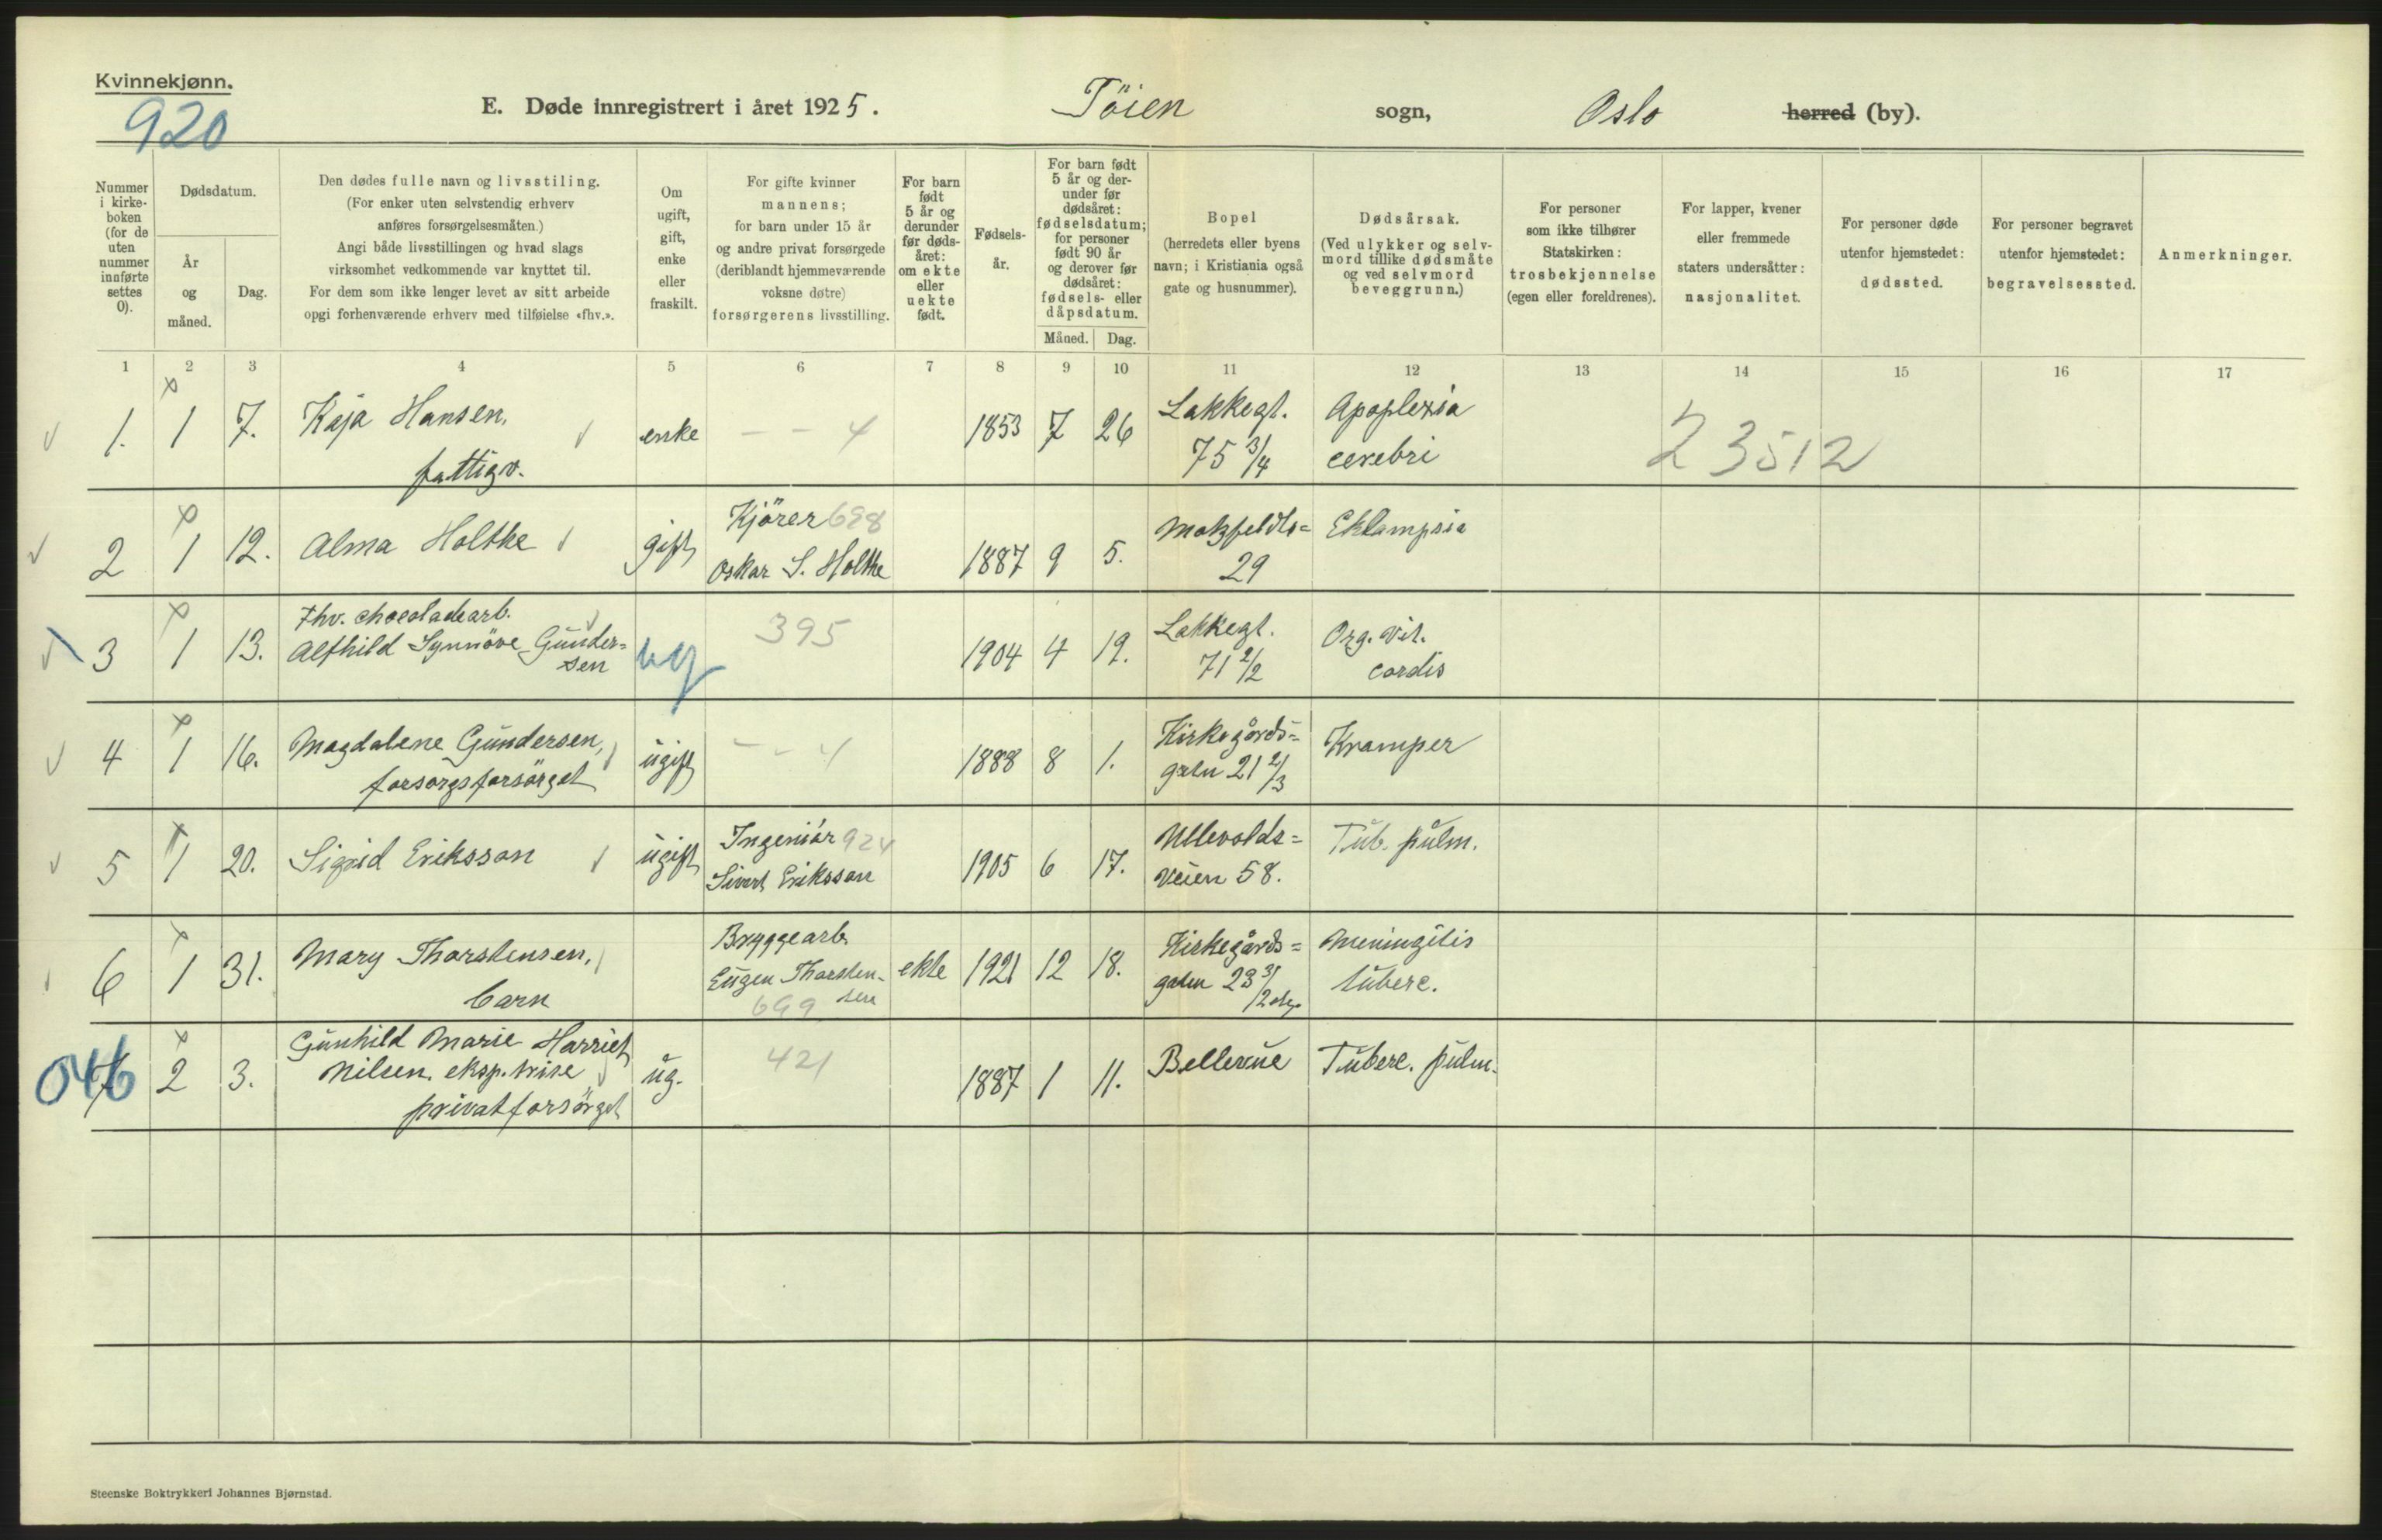 Kvinnekjønn.
920
E. Døde innregistrert i året 1925. Töien sogn, Oslo herred (by).
Nummer i kirke-boken (for de uten nummer innførte settes 0).
Dødsdatum.
År og måned.
Dag.
Den dødes fulle navn og livsstiling.
(For enker uten selvstendig erhverv
anføres forsørgelsesmåten.)
Angi både livsstillingen og hvad slags
virksomhet vedkommende var knyttet til.
For dem som ikke lenger levet av sitt arbeide
opgi forhenværende erhverv med tilføielse «fhv.».
Om ugift, gift, enke eller fraskilt.
For gifte kvinner
mannens;
for barn under 15 år
og andre privat forsørgede
(deriblandt hjemmeværende
voksne døtre)
forsørgerens livsstilling.
For barn født 5 år og derunder før døds-året: om ekte eller uekte født.
Fødsels-år.
For barn født 5 år og der-under før dødsåret: fødselsdatum; for personer født 90 år og derover før dødsåret: fødsels- eller dåpsdatum.
Måned. Dag.
Bopel
(herredets eller byens
navn; i Kristiania også
gate og husnummer).
Dødsårsak.
(Ved ulykker og selv-
mord tillike dødsmåte
og ved selvmord
beveggrunn.)
For personer
som ikke tilhører
Statskirken:
trosbekjennelse
(egen eller foreldrenes).
For lapper, kvener
eller fremmede
staters undersåtter:
nasjonalitet.
For personer døde
utenfor hjemstedet:
dødssted.
For personer begravet
utenfor hjemstedet:
begravelsessted.
Anmerkninger.
1 2 3 4 5 6 7 8 9 10 11 12 13 14 15 16 17
1. 1 7. Kaja Hansen, fattigv. enke - - 4 1853 7 26 Lakkegt. 75 3/4 Apoplexia cerebri 23512
2 1 12. Alma Holthe gift Kjörer 698 Oskar S. Holthe 1887 9 5. Motzfeldts= 29 Eklampsia
3 1 13. Fhv. chocoladearb. Alfhild Synnöve Gunder=sen ug 395 1904 4 19. Lakkegt. 71 2/2 Org. vit. cordis
4 1 16. Magdalene Gundersen, forsorgsforsörget ugift - - 4 1888 8 1. Kirkegårds=gaten 21 2/3 Kramper
5 1 20. Sigrid Eriksson ugift Ingeniör 924 Sivert Eriksson 1905 6 17. Ullevolds=veien 58. Tub. pulm.
6 1 31. Mary Thorstensen, barn Bryggearb. Eugen Thorsten-sen 699 ekte 1921 12 18. Kirkegårds=gaten 23 3/2 Meningitis tuberc.
046 7 2 3. Gunhild Marie Harriet Nilsen. eksp.trise privatforsörget ug. 421 1887 1 11. Bellevue Tuberc. pulm.
Steenske Boktrykkeri Johannes Bjørnstad.